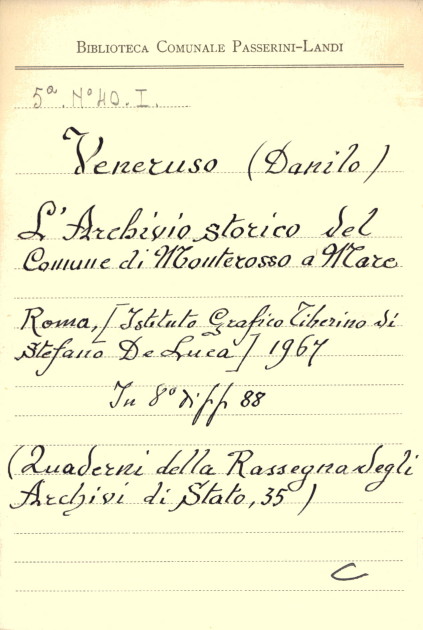 BIBLIOTECA COMUNALE PASSERINI-LANDI
5ª. N° 40. I.
Veneruso (Danilo)
L'Archivio storico del
Comune di Monterosso a Mare
Roma, [Istituto Grafico Tiberino di
Stefano De Luca] 1967
In 8° di pp 88
(Quaderni della Rassegna degli
Archivi di Stato, 35)
C